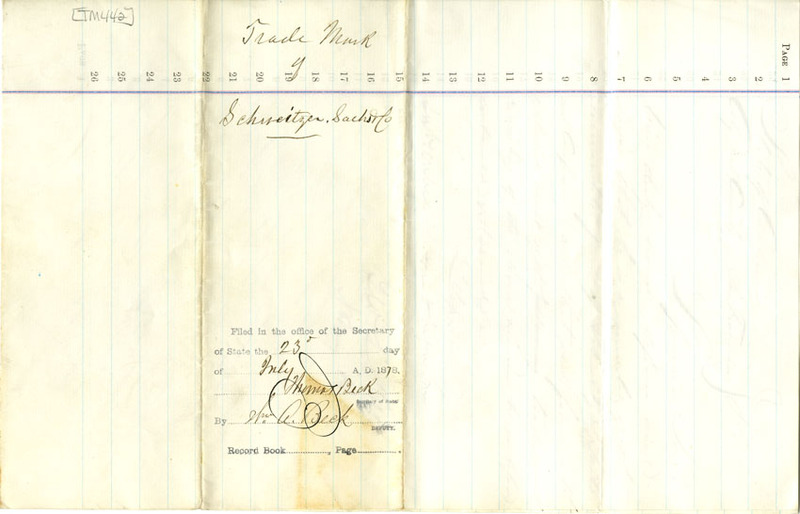 [TM442]
Trade Mark
of
Schweitzer, Sachs & Co
Filed in the office of the Secretary
of State the 23d day
of July A. D. 1878.
Thomas Beck
Secretary of State
By Wm A. Beck
DEPUTY.
Record Book , Page .
PAGE 1
2
3
4
5
6
7
8
9
10
11
12
13
14
15
16
17
18
19
20
21
22
23
24
25
26